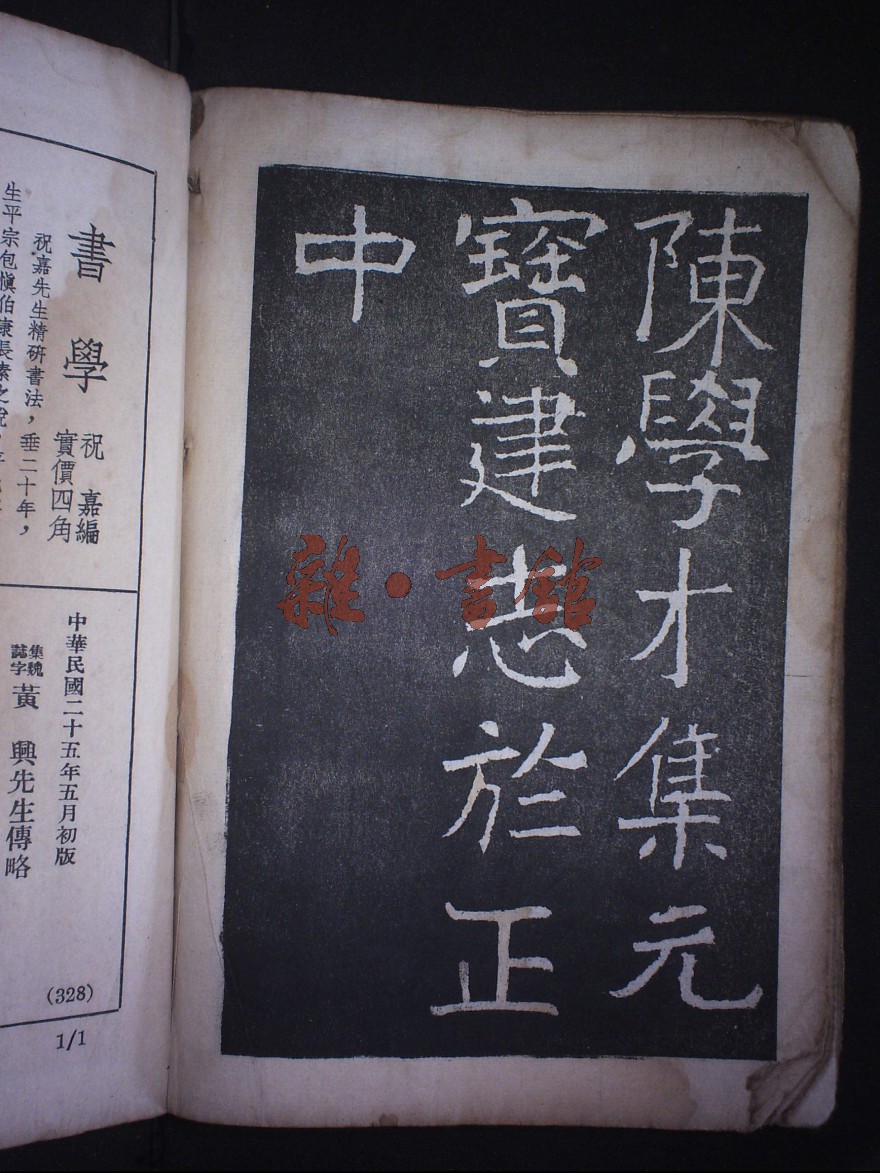 陳學才集元
寶建誌於正
中
雜·書館
書學
祝嘉編
實價四角
祝嘉先生精研書法，垂二十年，
生平宗包愼伯康長素之說，
中華民國二十五年五月初版
集魏
誌字
黃興先生傳略
(328)
1/1